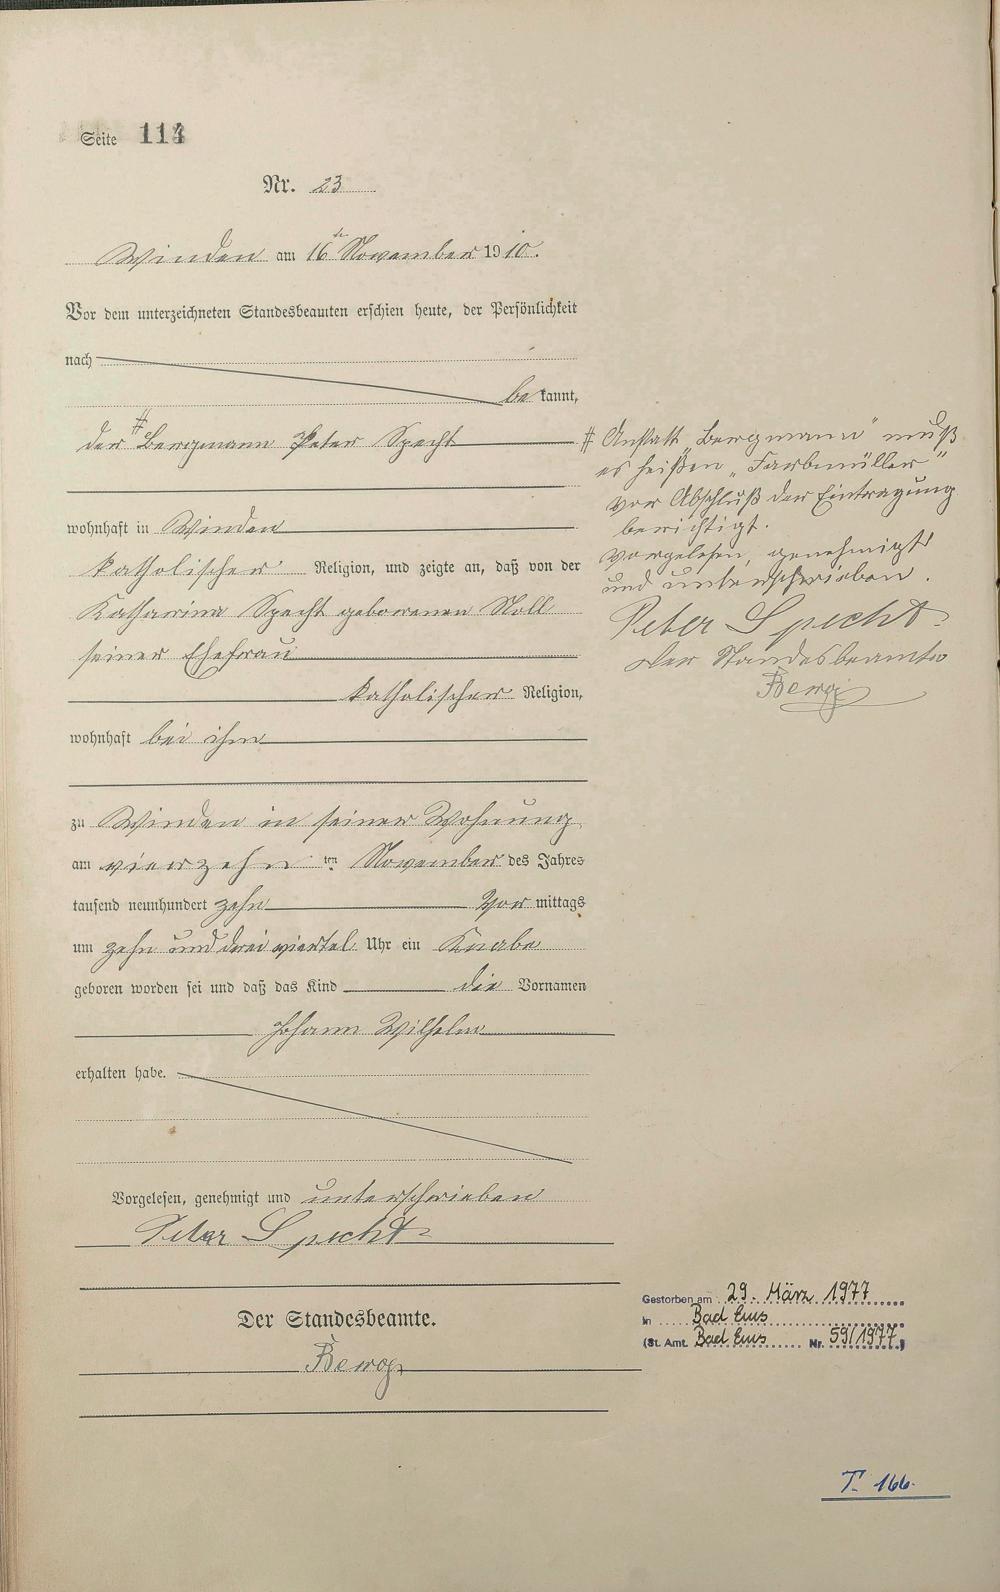 Seite 113
Nr. 23
Winden am 16ten November 1910.
Vor dem unterzeichneten Standesbeamten erschien heute, der Persönlichkeit
nach
be kannt,
der # Bergmann Peter Specht
wohnhaft in Winden
katholischer Religion, und zeigte an, daß von der
Katharina Specht geborenen Noll
seiner Ehefrau
katholischer Religion,
wohnhaft bei ihm
zu Winden in seiner Wohnung
am vierzehn ten November des Jahres
tausend neunhundert zehn Vor mittags
um zehn und drei viertel Uhr ein Knabe
geboren worden sei und daß das Kind die Vornamen
Johann Wilhelm
erhalten habe.
Vorgelesen, genehmigt und unterschrieben
Peter Specht
Der Standesbeamte.
# Anstatt „Bergmann" muß
es heißen „Farbmüller"
vor Abschluß der Eintragung
berichtigt.
Vorgelesen, genehmigt
und unterschrieben.
Peter Specht
Der Standesbeamte
Gestorben am 29. März 1977
in Bad Ems
(St. Amt. Bad Ems Nr. 59/1977)
T. 166.